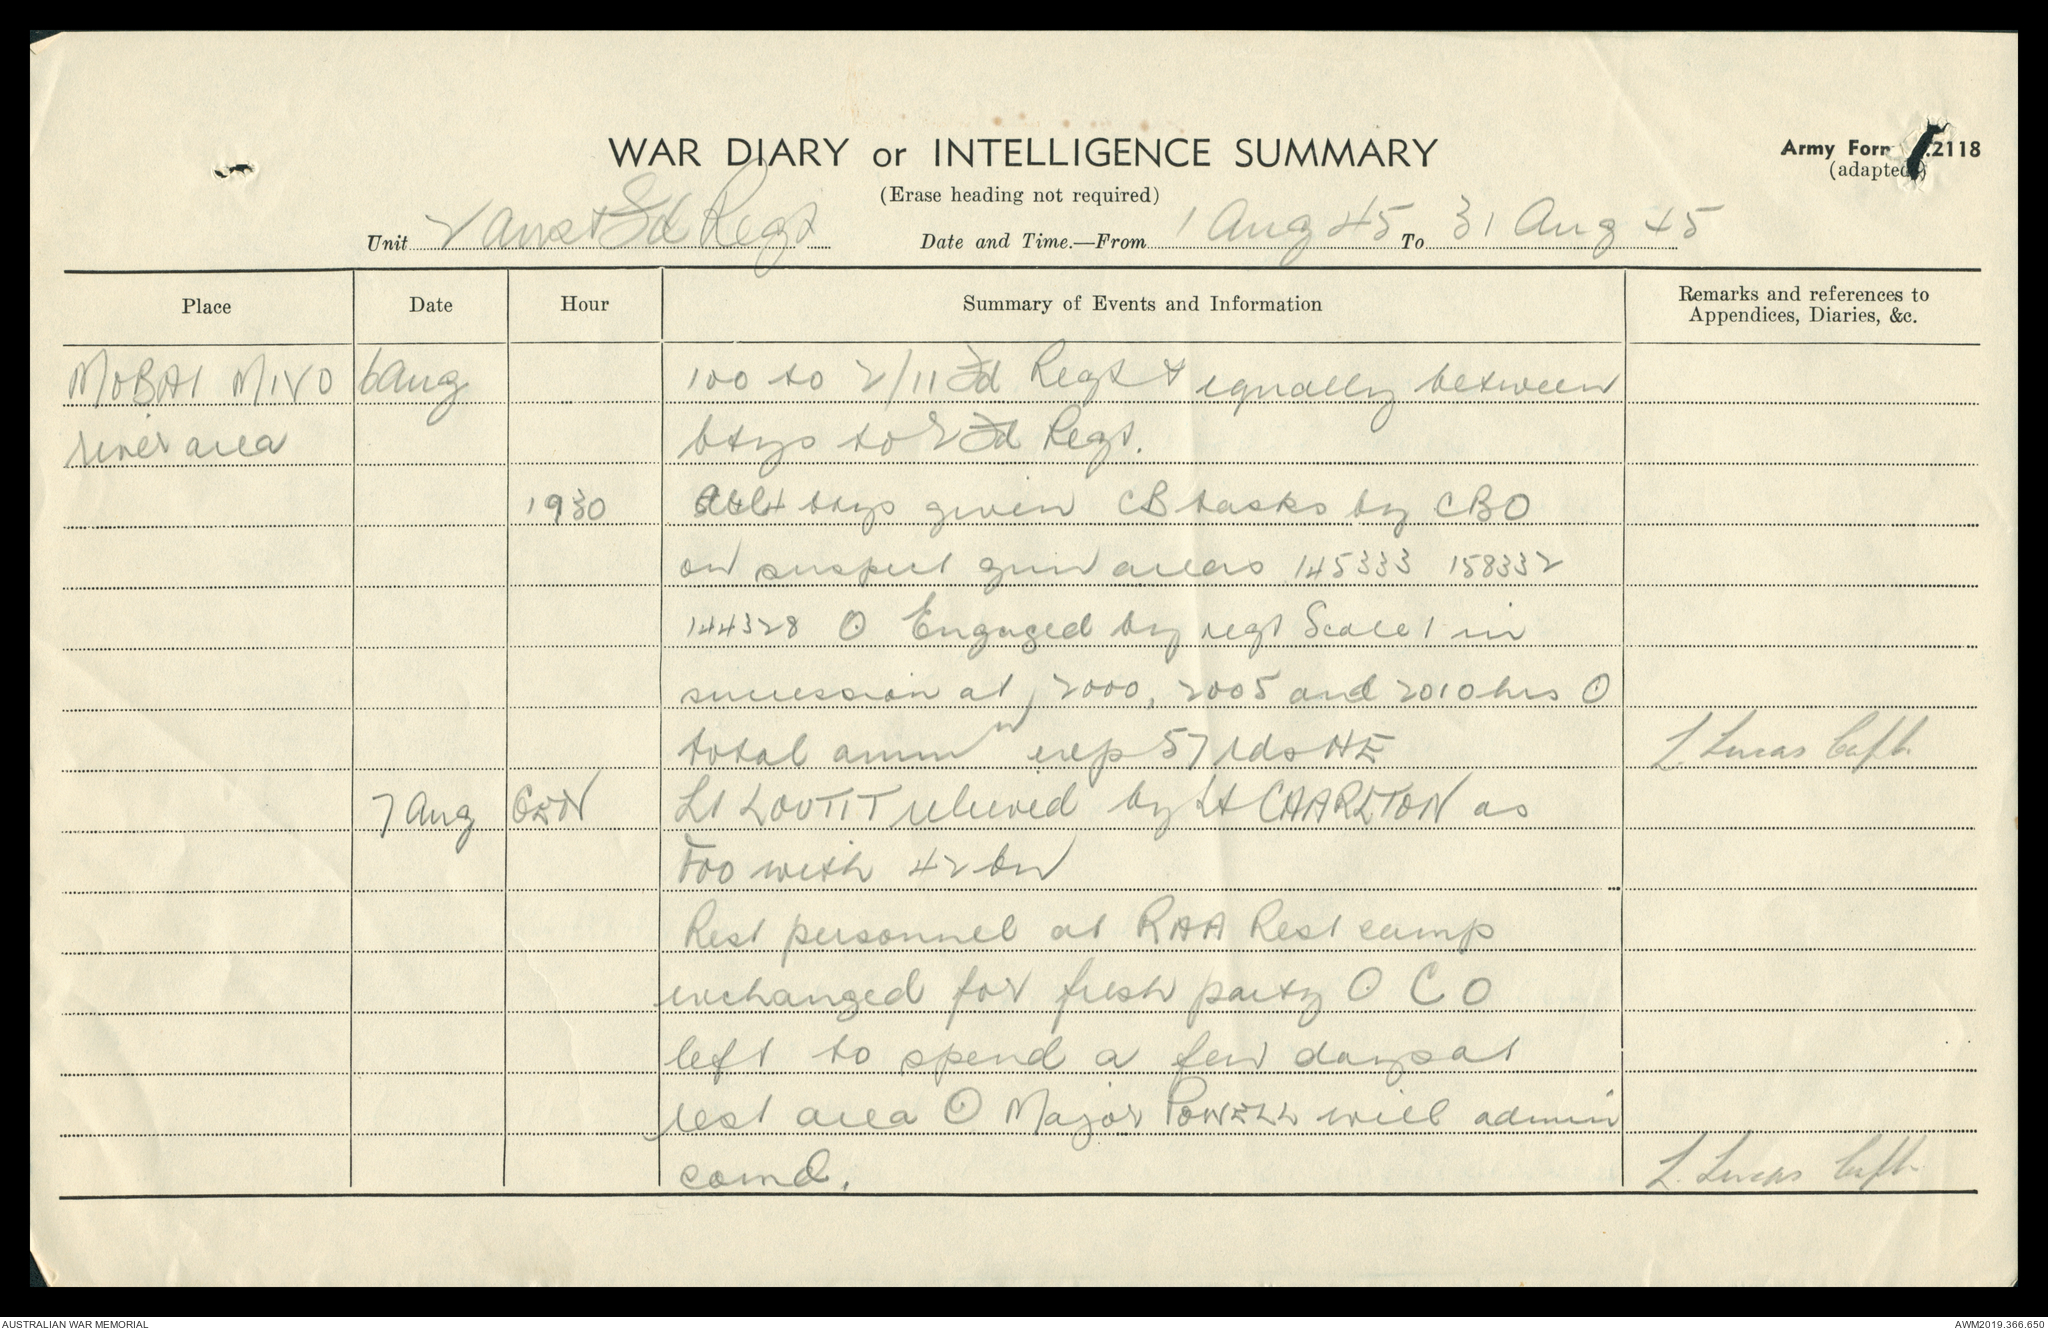 WAR DIARY or INTELLIGENCE SUMMARY
Army Form .2118
(adapted)
(Erase heading not required)
Unit 2 Aust Fd Regt Date and Time.—From 1 Aug 45 To 31 Aug 45
Place Date Hour Summary of Events and Information Remarks and references to
Appendices, Diaries, &c.
MOBAI MIVO 6 Aug 100 to 2/11 Fd Regt & equally between
river area btys to 2 Fd Regt.
1930 btys given CB tasks by CBO
on suspect gun areas 145333 158332
144328 O Engaged by regt Scale 1 in
succession at 2000, 2005 and 2010 hrs O
total ammn exp 57 rds HE L. Lucas Capt.
7 Aug GEN Lt LOUTIT relieved by Lt CHARLTON as
FOO with 42 bn
Rest personnel at RAA Rest camp
exchanged for fresh party O CO
left to spend a few days at
rest area O Major POWELL will admin
comd. L. Lucas Capt.
AUSTRALIAN WAR MEMORIAL AWM2019.366.650